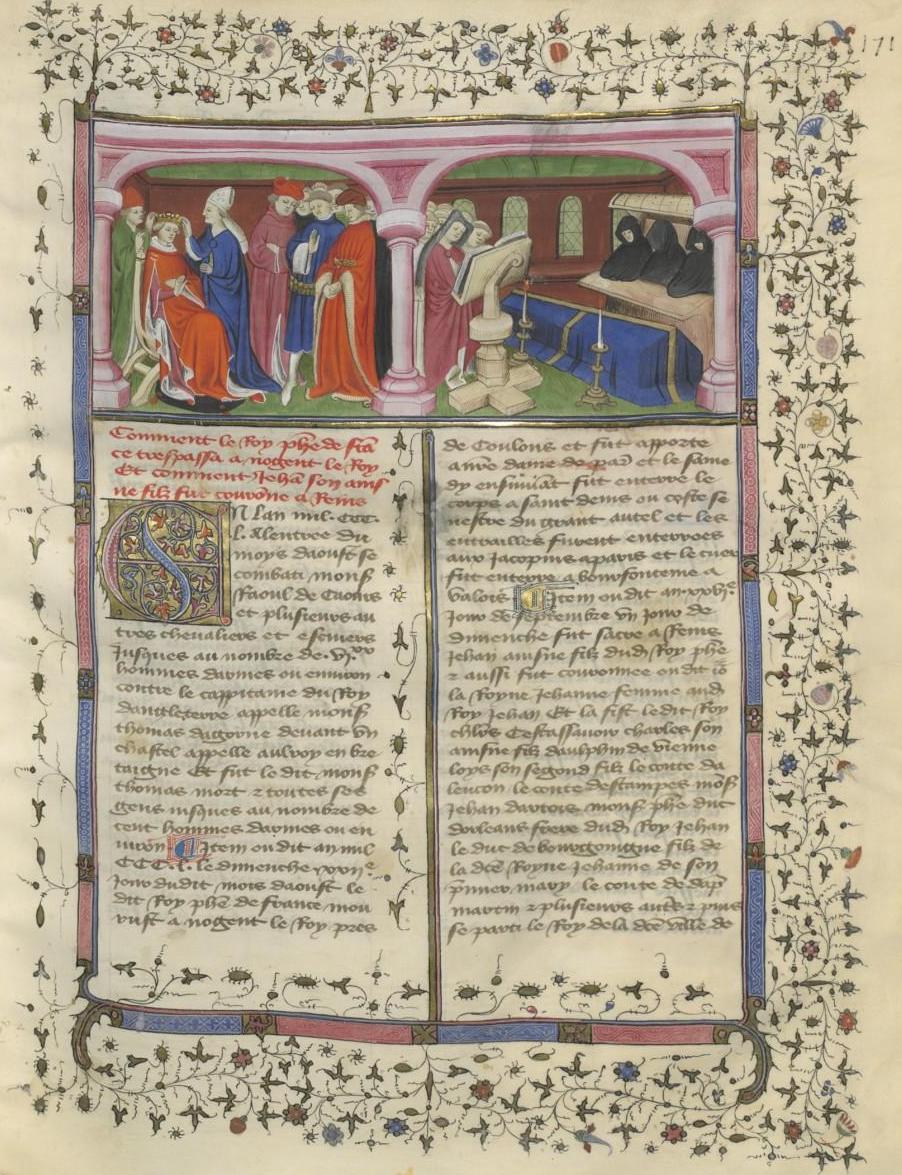 171
Comment le Roy phe de fra
ce trespassa a nogent le Roy
Et comment Jehan son ains
ne filz fut couronne a Reins
EN Lan mil . CCC.
L. A lentree du
moys daoust se
combati monſ
Raoul de Caours
et plusieurs au
tres chevaliers et escuiers
Jusques au nombre de . vi.xx
hommes darmes ou environ
contre le cappitaine du Roy
dangleterre appelle monſ
thomas dagorne devant vn
chastel appelle aulroy en bre
taigne Et fut le dit monſ
thomas mort et toutes ses
gens iusques au nombre de
cent hommes darmes ou en
uiron Item ou dit an mil
CCC. L. le dimenche xxii e
Jour dudit mois daoust le
dit Roy phe de france mou
rust a nogent le Roy pres
de Coulons et fut apporte
a nre dame de par et le jeme
dy ensuiuat fut enterre le
corps a saint denis ou coste se
nestre du grant autel et les
entrailles furent enterrees
aux Jacopins a paris et le cuer
fut enterre a bourfonteme a
Valois Item ou dit an xxvi e
Jour de septembre vn jour de
dimenche fut sacre a Reins
Jehan ainsne filz dud Roy phe
et aussi fut couronnee ou dit io
la Royne Jehanne femme aud
Roy Jehan Et la fist ledit Roy
chlrs Cestassauoir charles son
ainsne filz daulphin de vienne
loys son segond filz le conte da
lencon le conte destampes monſ
Jehan dartois monſ phe duc
dorleans frere dud Roy Jehan
le duc de bourgoingne filz de
la dce Royne Jehanne de son
pmier mary le conte de dap
martin et plusieurs autres et puis
se parti le Roy de la dce ville de